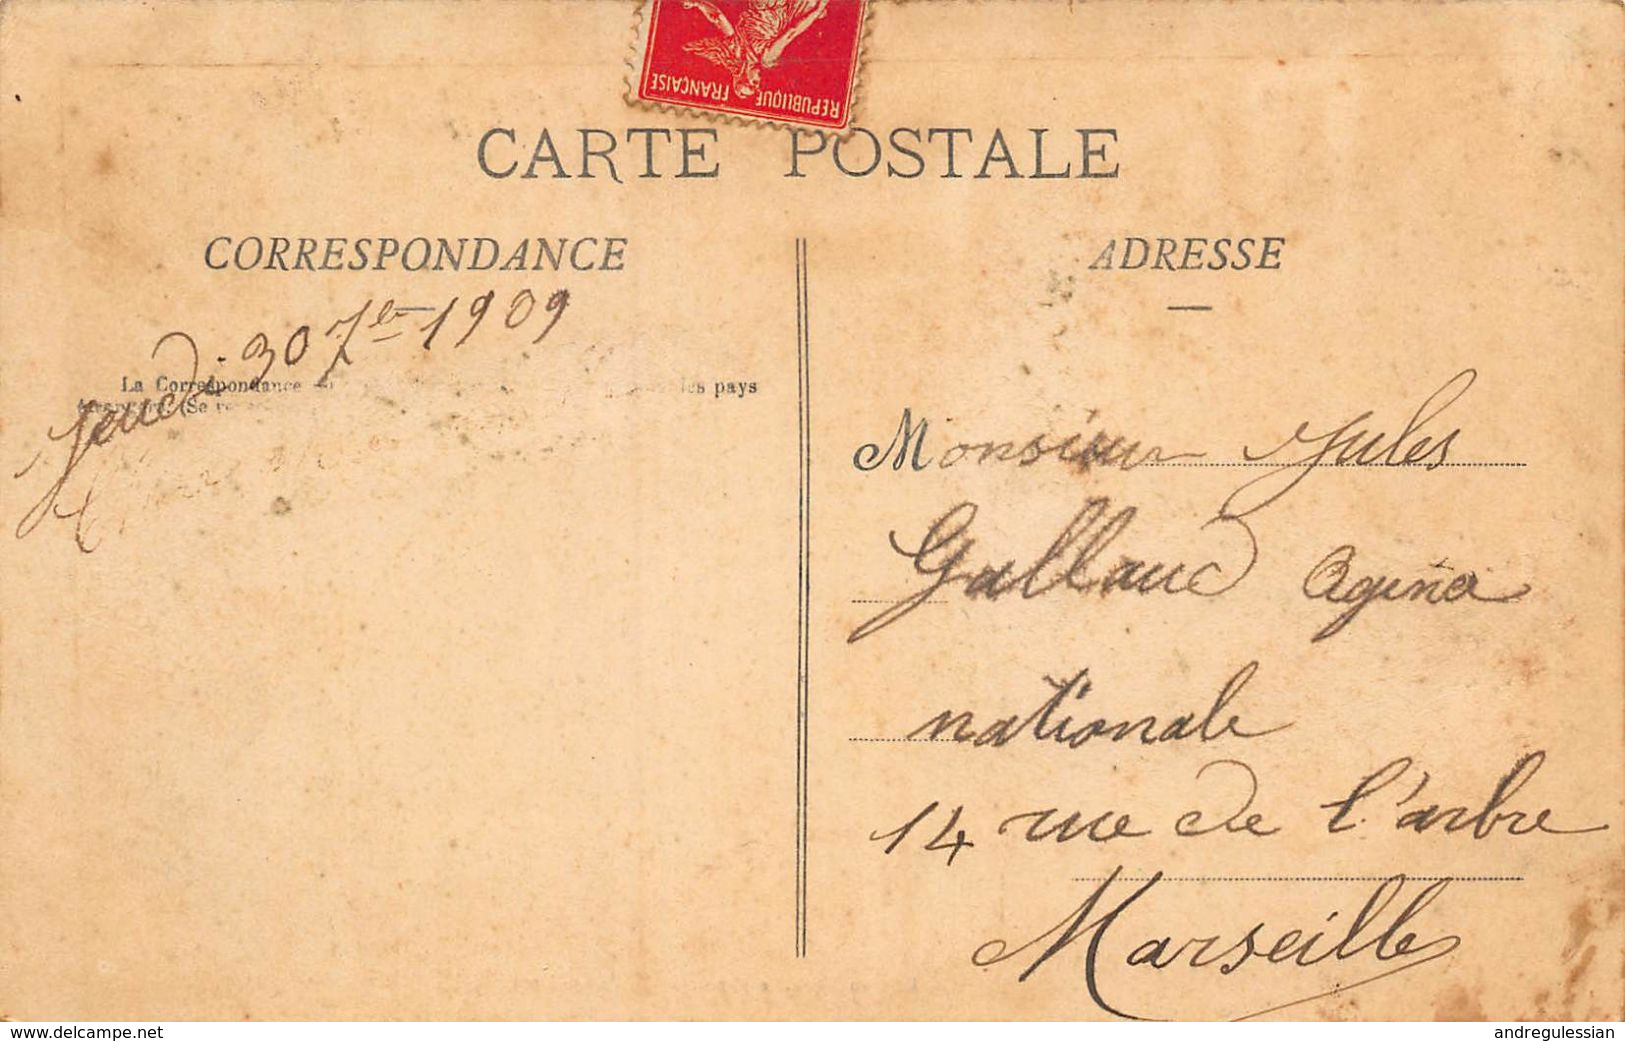 REPUBLIQUE FRANÇAISE
CARTE POSTALE
CORRESPONDANCE
ADRESSE
Jeudi 30 7bre 1909
La Correspondance les pays
(Se
Monsieur Jules
Gallaud Agence
nationale
14 rue de l'arbre
Marseille
www.delcampe.net
andregulessian